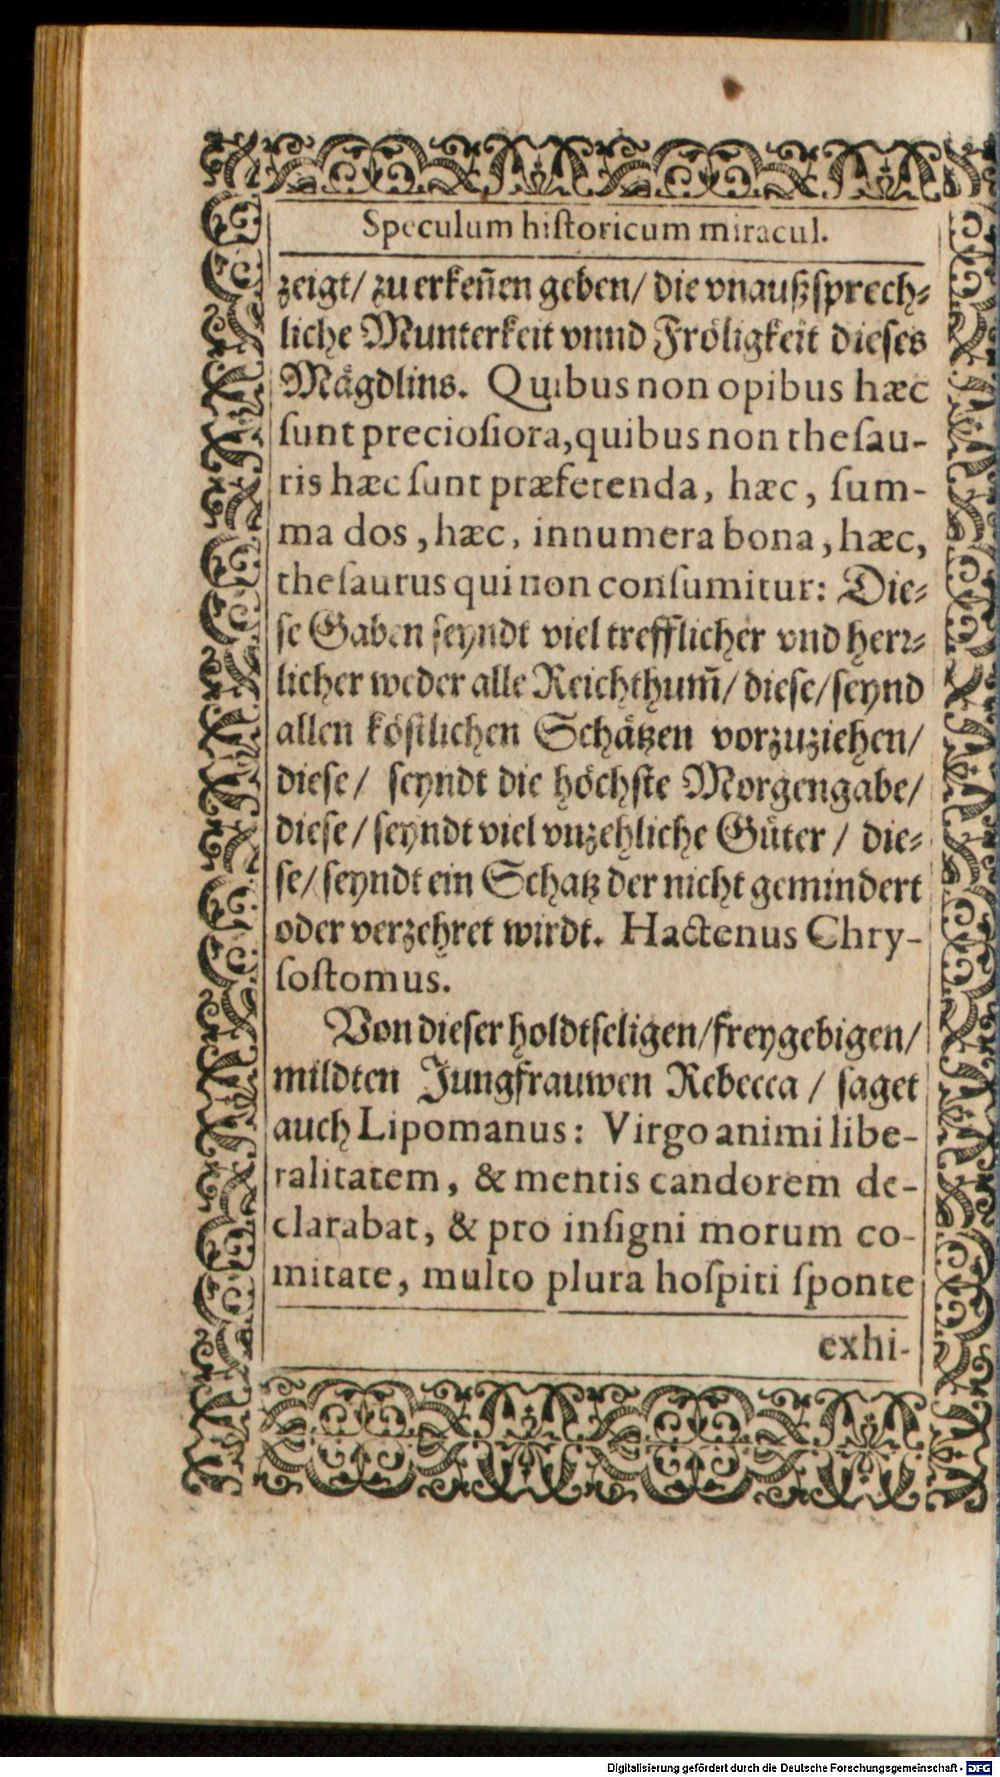 Speculum hiſtoricum miracul.
zeigt/ zu erkeñen geben/ die vnaußſprech⸗
liche Munterkeit vnnd Fröligkeit dieſes
Mägdlins. Quibus non opibus hæc
ſunt precioſiora, quibus non theſau-
ris hæc ſunt præferenda, hæc, ſum-
ma dos, hæc, innumera bona, hæc,
theſaurus qui non conſumitur: Die⸗
ſe Gaben ſeyndt viel trefflicher vnd herꝛ⸗
licher weder alle Reichthum̃/ dieſe/ ſeynd
allen köſtlichen Schätzen vorzuziehen/
dieſe/ ſeyndt die höchſte Morgengabe/
dieſe/ ſeyndt viel vnzehliche Güter/ die⸗
ſe/ ſeyndt ein Schatz der nicht gemindert
oder verzehret wirdt. Hactenus Chry-
ſoſtomus.
Von dieſer holdtſeligen/ freygebigen/
mildten Jungfrauwen Rebecca/ ſaget
auch Lipomanus: Virgo animi libe-
ralitatem, & mentis candorem de-
clarabat, & pro inſigni morum co-
mitate, multo plura hoſpiti ſponte
exhi-
Digitalisierung gefördert durch die Deutsche Forschungsgemeinschaft - DFG